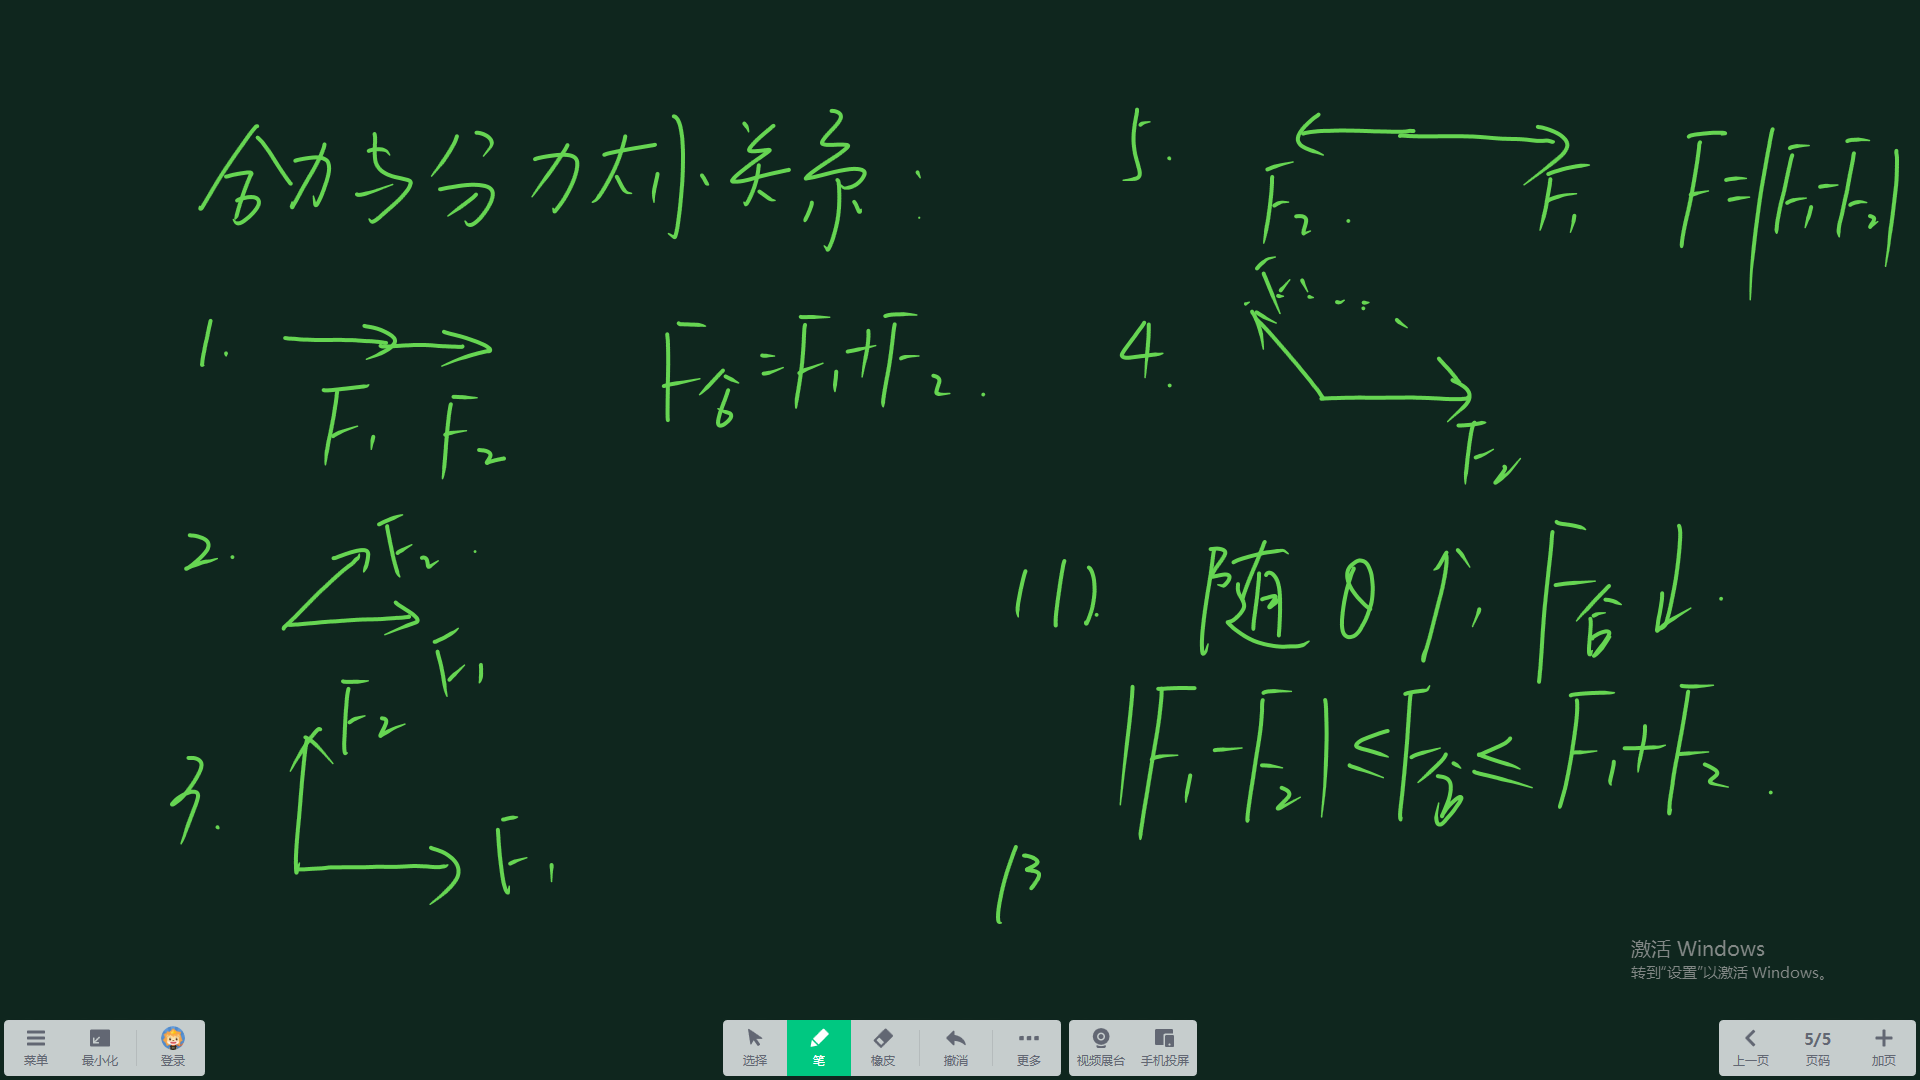 合力与分力大小关系:
1.
F1 F2
F合=F1+F2.
2.
F2
F1
3.
F2
F1
5.
F2
F1
F=|F1-F2|
4.
F1
F2
(1).随θ↑,F合↓.
|F1-F2|≤F合≤F1+F2.
激活 Windows
转到"设置"以激活 Windows。
菜单 最小化 登录 选择 笔 橡皮 撤消 更多 视频展台 手机投屏 上一页 5/5 页码 加页